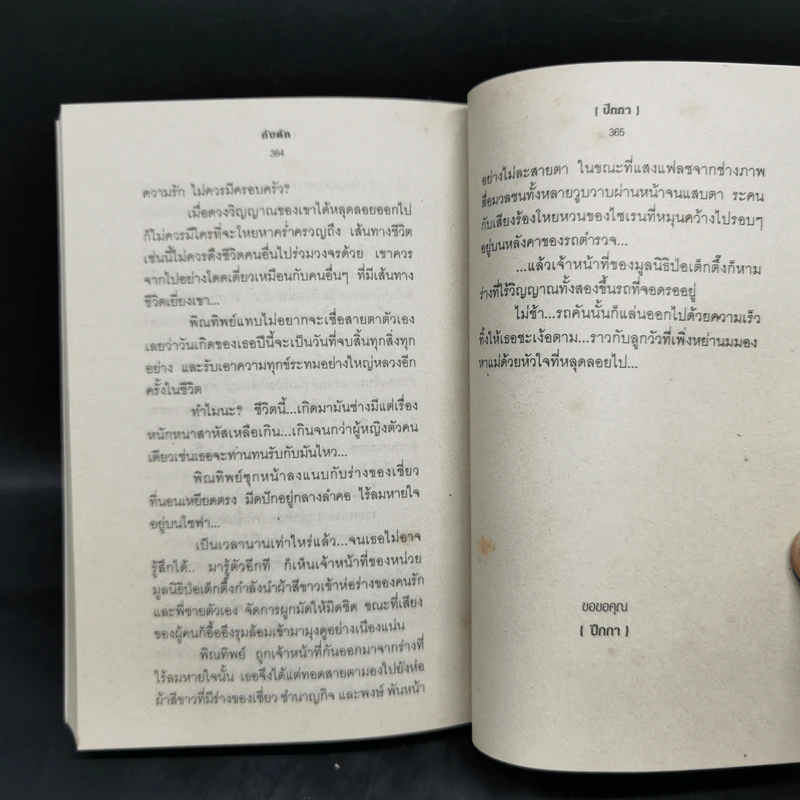 กับดัก
364
ความรัก ไม่ควรมีครอบครัว?
เมื่อดวงวิญญาณของเขาได้หลุดลอยออกไป
ก็ไม่ควรมีใครที่จะโหยหาคร่ำครวญถึง เส้นทางชีวิต
เช่นนี้ไม่ควรดึงชีวิตคนอื่นไปร่วมวงจรด้วย เขาควร
จากไปอย่างโดดเดี่ยวเหมือนกับคนอื่นๆ ที่มีเส้นทาง
ชีวิตเยี่ยงเขา...
พิณทิพย์แทบไม่อยากจะเชื่อสายตาตัวเอง
เลยว่าวันเกิดของเธอปีนี้จะเป็นวันที่จบสิ้นทุกสิ่งทุก
อย่าง และรับเอาความทุกข์ระทมอย่างใหญ่หลวงอีก
ครั้งในชีวิต
ทำไมนะ? ชีวิตนี้...เกิดมามันช่างมีแต่เรื่อง
หนักหนาสาหัสเหลือเกิน...เกินจนกว่าผู้หญิงตัวคน
เดียวเช่นเธอจะทานทนรับกับมันไหว...
พิณทิพย์ซุกหน้าลงแนบกับร่างของเชี่ยว
ที่นอนเหยียดตรง มีดปักอยู่กลางลำคอ ไร้ลมหายใจ
อยู่บนโซฟา...
เป็นเวลานานเท่าไหร่แล้ว...จนเธอไม่อาจ
รู้สึกได้.. มารู้ตัวอีกที ก็เห็นเจ้าหน้าที่ของหน่วย
มูลนิธิป่อเต็กตึ๊งกำลังนำผ้าสีขาวเข้าห่อร่างของคนรัก
และพี่ชายตัวเอง จัดการผูกมัดให้มิดชิด ขณะที่เสียง
ของผู้คนก็อื้ออึงรุมล้อมเข้ามามุงดูอย่างเนืองแน่น
พิณทิพย์ ถูกเจ้าหน้าที่กันออกมาจากร่างที่
ไร้ลมหายใจนั้น เธอจึงได้แต่ทอดสายตามองไปยังห่อ
ผ้าสีขาวที่มีร่างของเชี่ยว ชำนาญกิจ และพงษ์ พันหน้า
{ ปักกา }
365
อย่างไม่ละสายตา ในขณะที่แสงแฟลชจากช่างภาพ
สื่อมวลชนทั้งหลายวูบวาบผ่านหน้าจนแสบตา ระคน
กับเสียงร้องโหยหวนของไซเรนที่หมุนคว้างไปรอบๆ
อยู่บนหลังคาของรถตำรวจ...
...แล้วเจ้าหน้าที่ของมูลนิธิป่อเต็กตึ๊งก็หาม
ร่างที่ไร้วิญญาณทั้งสองขึ้นรถที่จอดรออยู่
ไม่ช้า...รถคันนั้นก็แล่นออกไปด้วยความเร็ว
ทิ้งให้เธอชะเง้อตาม...ราวกับลูกวัวที่เพิ่งหย่านมมอง
หาแม่ด้วยหัวใจที่หลุดลอยไป...
ขอขอคุณ
{ ปักกา }